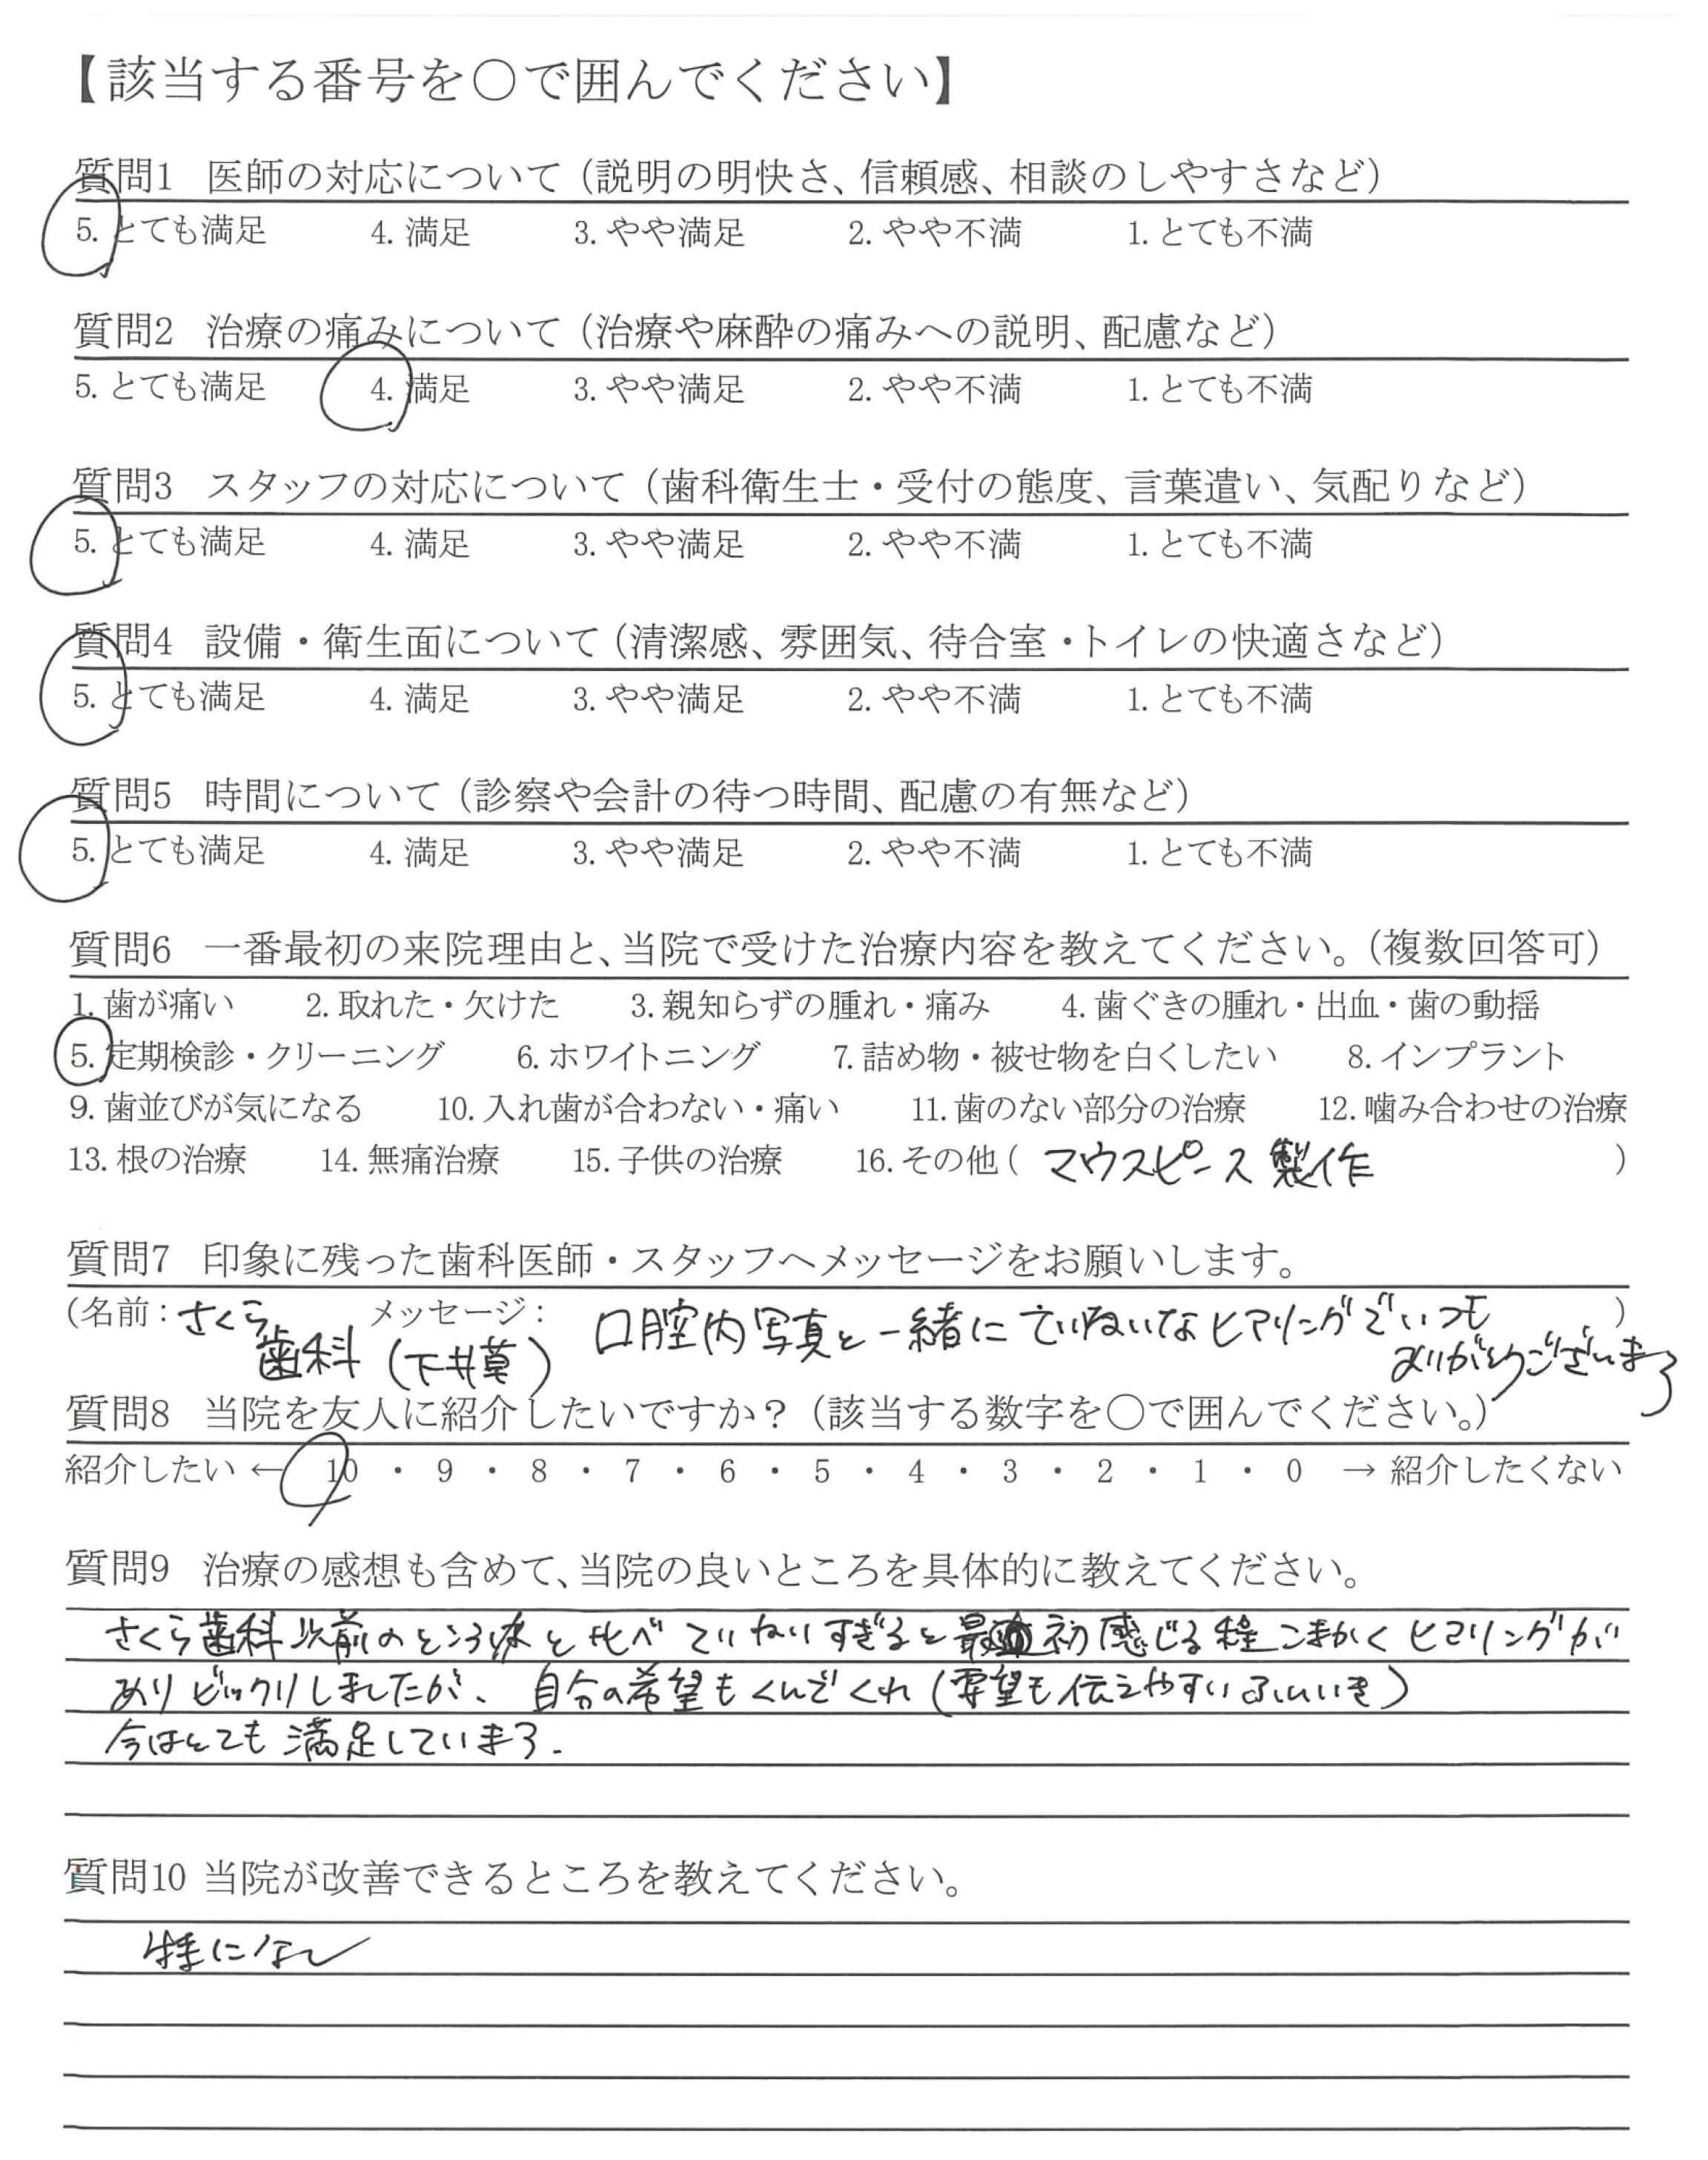 【該当する番号を○で囲んでください】
質問1 医師の対応について（説明の明快さ、信頼感、相談のしやすさなど）
5. とても満足 4. 満足 3. やや満足 2. やや不満 1. とても不満
質問2 治療の痛みについて（治療や麻酔の痛みへの説明、配慮など）
5. とても満足 4. 満足 3. やや満足 2. やや不満 1. とても不満
質問3 スタッフの対応について（歯科衛生士・受付の態度、言葉遣い、気配りなど）
5. とても満足 4. 満足 3. やや満足 2. やや不満 1. とても不満
質問4 設備・衛生面について（清潔感、雰囲気、待合室・トイレの快適さなど）
5. とても満足 4. 満足 3. やや満足 2. やや不満 1. とても不満
質問5 時間について（診察や会計の待つ時間、配慮の有無など）
5. とても満足 4. 満足 3. やや満足 2. やや不満 1. とても不満
質問6 一番最初の来院理由と、当院で受けた治療内容を教えてください。（複数回答可）
1. 歯が痛い 2. 取れた・欠けた 3. 親知らずの腫れ・痛み 4. 歯ぐきの腫れ・出血・歯の動揺
5. 定期検診・クリーニング 6. ホワイトニング 7. 詰め物・被せ物を白くしたい 8. インプラント
9. 歯並びが気になる 10. 入れ歯が合わない・痛い 11. 歯のない部分の治療 12. 噛み合わせの治療
13. 根の治療 14. 無痛治療 15. 子供の治療 16. その他（ マウスピース製作 ）
質問7 印象に残った歯科医師・スタッフへメッセージをお願いします。
（名前：さくら メッセージ： 口腔内写真と一緒にていねいなヒアリングでいつも ）
歯科（下井草） ありがとうございます
質問8 当院を友人に紹介したいですか？（該当する数字を○で囲んでください。）
紹介したい ← 10 ・ 9 ・ 8 ・ 7 ・ 6 ・ 5 ・ 4 ・ 3 ・ 2 ・ 1 ・ 0 → 紹介したくない
質問9 治療の感想も含めて、当院の良いところを具体的に教えてください。
さくら歯科以前のところと比べていねいすぎると最初感じる程こまかくヒアリングが
ありビックリしましたが、自分の希望もくんでくれ（要望も伝えやすいふんいき）
今はとても満足しています.
質問10 当院が改善できるところを教えてください。
特になし